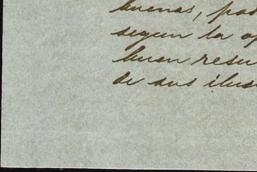 buenas, pos
segun la op
buen resu
de sus ilus